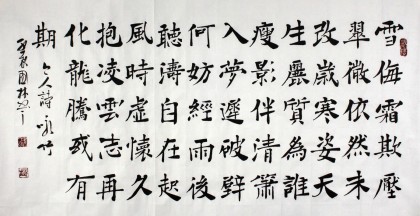 雪侮霜欺壓
翠微依然未
改歲寒姿天
生麗質為誰
瘦影伴清簫
入夢遲破壁
何妨經雨後
聽濤自在起
風時虛懷久
抱凌雲志再
化龍騰或有
期 今人詩詠竹